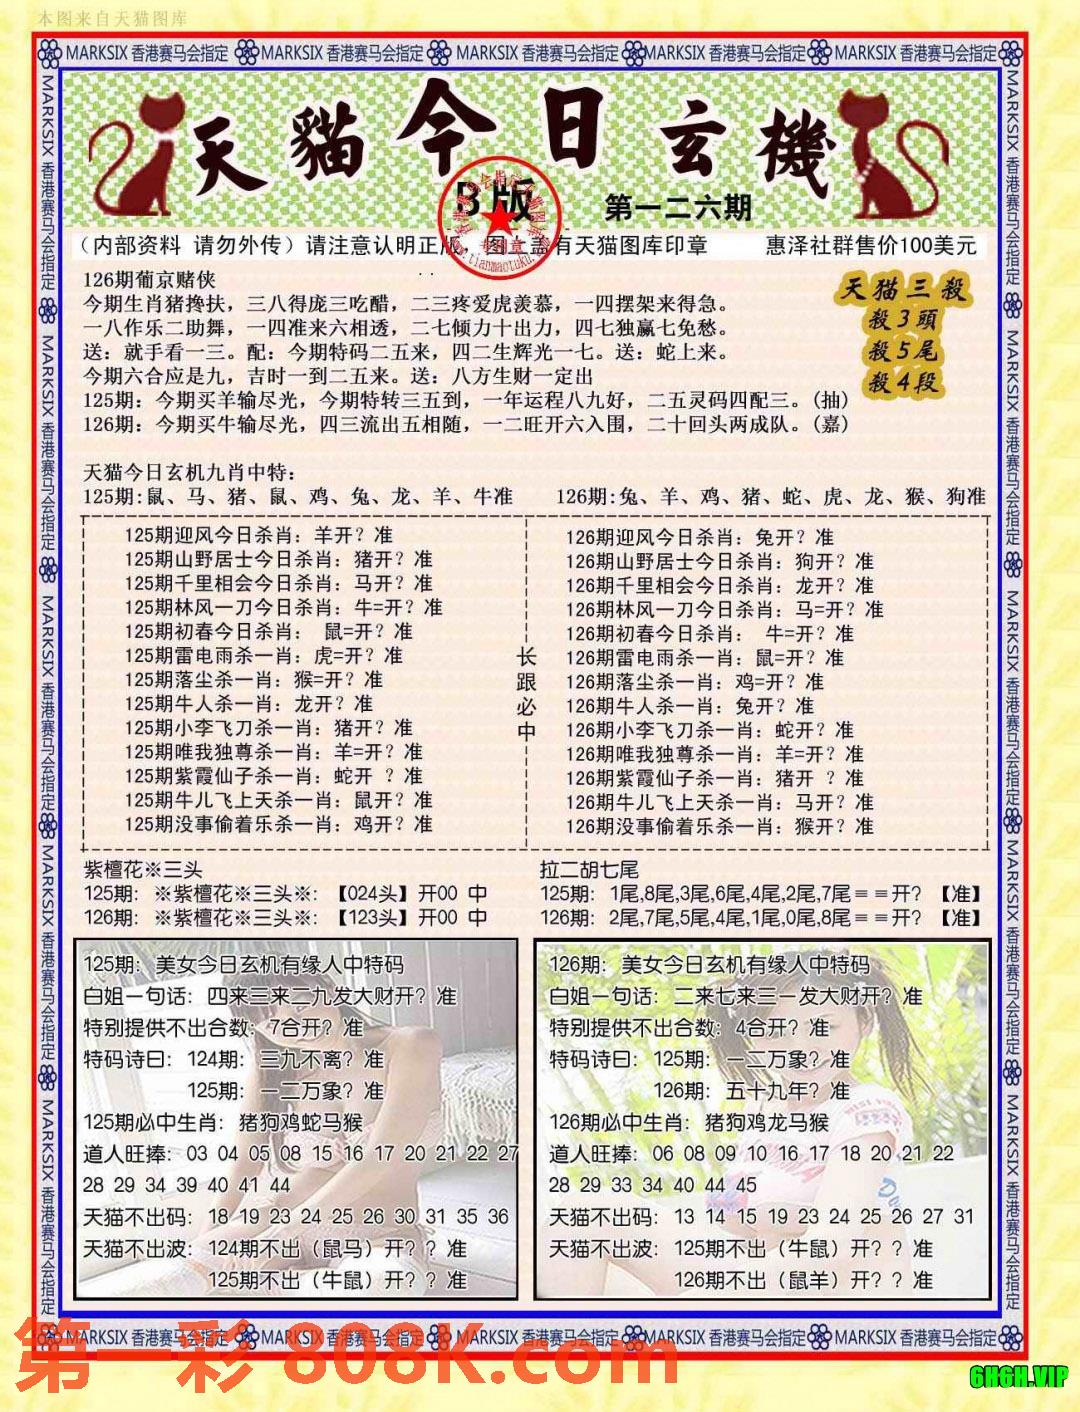 本图来自天猫图库
MARKSIX 香港赛马会指定 MARKSIX 香港赛马会指定 MARKSIX 香港赛马会指定 MARKSIX 香港赛马会指定 MARKSIX 香港赛马会指定
天貓今日玄機
B版
第一二六期
（内部资料 请勿外传）请注意认明正版，图上盖有天猫图库印章 惠泽社群售价100美元
www.tianmaotuku.com
126期葡京赌侠
今期生肖猪搀扶，三八得庞三吃醋，二三疼爱虎羡慕，一四摆架来得急。
一八作乐二助舞，一四准来六相透，二七倾力十出力，四七独赢七免愁。
送：就手看一三。配：今期特码二五来，四二生辉光一七。送：蛇上来。
今期六合应是九，吉时一到二五来。送：八方生财一定出
125期：今期买羊输尽光，今期特转三五到，一年运程八九好，二五灵码四配三。(抽)
126期：今期买牛输尽光，四三流出五相随，一二旺开六入围，二十回头两成队。(嘉)
天猫三殺
殺3頭
殺5尾
殺4段
天猫今日玄机九肖中特：
125期:鼠、马、猪、鼠、鸡、兔、龙、羊、牛准 126期:兔、羊、鸡、猪、蛇、虎、龙、猴、狗准
125期迎风今日杀肖：羊开？准
125期山野居士今日杀肖：猪开？准
125期千里相会今日杀肖：马开？准
125期林风一刀今日杀肖：牛=开？准
125期初春今日杀肖： 鼠=开？准
125期雷电雨杀一肖：虎=开？准
125期落尘杀一肖：猴=开？准
125期牛人杀一肖：龙开？准
125期小李飞刀杀一肖：猪开？准
125期唯我独尊杀一肖：羊=开？准
125期紫霞仙子杀一肖：蛇开 ？准
125期牛儿飞上天杀一肖：鼠开？准
125期没事偷着乐杀一肖：鸡开？准
长跟必中
126期迎风今日杀肖：兔开？准
126期山野居士今日杀肖：狗开？准
126期千里相会今日杀肖：龙开？准
126期林风一刀今日杀肖：马=开？准
126期初春今日杀肖： 牛=开？准
126期雷电雨杀一肖：鼠=开？准
126期落尘杀一肖：鸡=开？准
126期牛人杀一肖：兔开？准
126期小李飞刀杀一肖：蛇开？准
126期唯我独尊杀一肖：羊=开？准
126期紫霞仙子杀一肖：猪开 ？准
126期牛儿飞上天杀一肖：马开？准
126期没事偷着乐杀一肖：猴开？准
紫檀花※三头
125期：※紫檀花※三头※：【024头】开00 中
126期：※紫檀花※三头※：【123头】开00 中
拉二胡七尾
125期：1尾,8尾,3尾,6尾,4尾,2尾,7尾＝＝开？【准】
126期：2尾,7尾,5尾,4尾,1尾,0尾,8尾＝＝开？【准】
125期：美女今日玄机有缘人中特码
白姐一句话：四来三来二九发大财开？准
特别提供不出合数：7合开？准
特码诗曰：124期：三九不离？准
125期：一二万象？准
125期必中生肖：猪狗鸡蛇马猴
道人旺捧：03 04 05 08 15 16 17 20 21 22 27
28 29 34 39 40 41 44
天猫不出码：18 19 23 24 25 26 30 31 35 36
天猫不出波：124期不出（鼠马）开？？准
125期不出（牛鼠）开？？准
126期：美女今日玄机有缘人中特码
白姐一句话：二来七来三一发大财开？准
特别提供不出合数：4合开？准
特码诗曰：125期：一二万象？准
126期：五十九年？准
126期必中生肖：猪狗鸡龙马猴
道人旺捧：06 08 09 10 16 17 18 20 21 22
28 29 33 34 40 44 45
天猫不出码：13 14 15 19 23 24 25 26 27 31
天猫不出波：125期不出（牛鼠）开？？准
126期不出（鼠羊）开？？准
MARKSIX 香港赛马会指定 MARKSIX 香港赛马会指定 MARKSIX 香港赛马会指定 MARKSIX 香港赛马会指定 MARKSIX 香港赛马会指定
第一彩 808K.com
6HGH.VIP